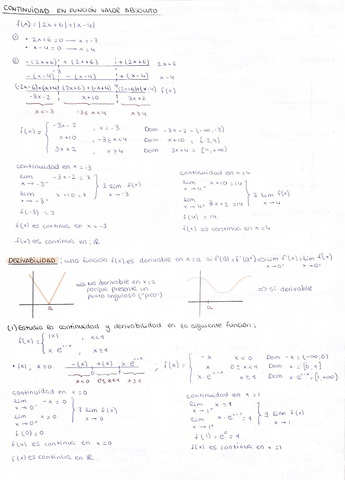 CONTINUIDAD EN FUNCIÓN VALOR ABSOLUTO
f(x) = |2x+6| + |x-4|
① • 2x+6=0 → x=-3
• x-4=0 → x=4
② -(2x+6) +(2x+6) +(2x+6) 2x+6
-(x-4) -3 -(x-4) 4 +(x-4) x-4
f(x)
-3x-2 x+10 3x+2
x<-3 -3≤x<4 x≥4
f(x) = { -3x-2 , x<-3 Dom -3x-2 = (-∞,-3)
x+10 , -3≤x<4 Dom x+10 = [-3,4)
3x+2 , x≥4 Dom 3x+2 = [4,+∞)
continuidad en x=-3
lim x→-3⁻ -3x-2 = 7
lim x→-3⁺ x+10 = 7
∃ lim f(x) x→-3
f(-3) = 7
f(x) es continua en x=-3
f(x) es continua en ℝ
continuidad en x=4
lim x→4⁻ x+10 = 14
lim x→4⁺ 3x+2 = 14
∃ lim f(x) x→4
f(4) = 14
f(x) es continua en x=4
DERIVABILIDAD: una función f(x) es derivable en x=a si
=> No derivable en x=a
porque presenta un
punto anguloso ("pico")
a
=> si derivable
(1) Estudia la continuidad y derivabilidad en la siguiente función:
f(x) = { |x| , x<1
x·eˣ⁻¹ , x≥1
• |x|, x=0
-(x) +(x) x·eˣ⁻¹
x<0 0≤x<1 x≥1
f(x) = { -x x<0 Dom -x = (-∞,0)
x 0≤x<1 Dom x = [0,1)
x·eˣ⁻¹ x≥1 Dom x·eˣ⁻¹ = [1,+∞)
continuidad en x=0
lim x→0⁻ -x = 0
lim x→0⁺ x = 0
∃ lim f(x) x→0
f(0) = 0
f(x) es continua en x=0
f(x) es continua en ℝ
continuidad en x=1
lim x→1⁻ x = 1
lim x→1⁺ x·eˣ⁻¹ = 1
∃ lim f(x) x→1
f(1) = e⁰ = 1
f(x) es continua en x=1